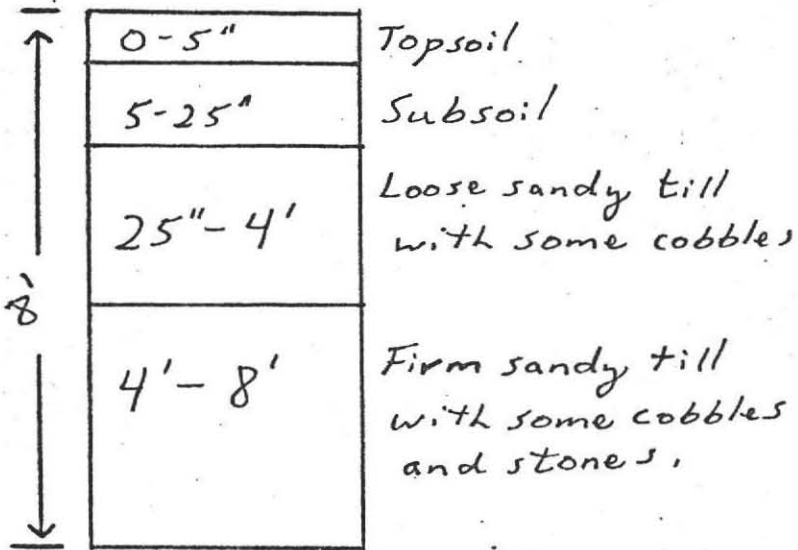 0-5" Topsoil
5-25" Subsoil
25"-4' Loose sandy till
with some cobbles
8'
4'-8' Firm sandy till
with some cobbles
and stones.